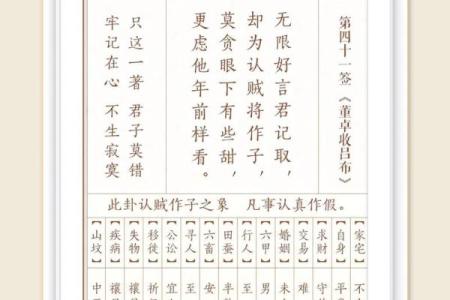 第四十一签《董卓收吕布》
无限好言君记取，
却为认贼将作子，
莫贪眼下有些甜，
更虑他年前样看。
只这一著 君子莫错
牢记在心 不生寂寞
此卦认贼作子之象 凡事认真作假。
【家宅】不
【自身】平
【求财】守
【交易】难
【婚姻】未
【六甲】男
【行人】至
【田蚕】半
【六畜】安
【寻人】至
【公讼】宜
【移徙】祈
【失物】
【疾病】禳
【山坟】中